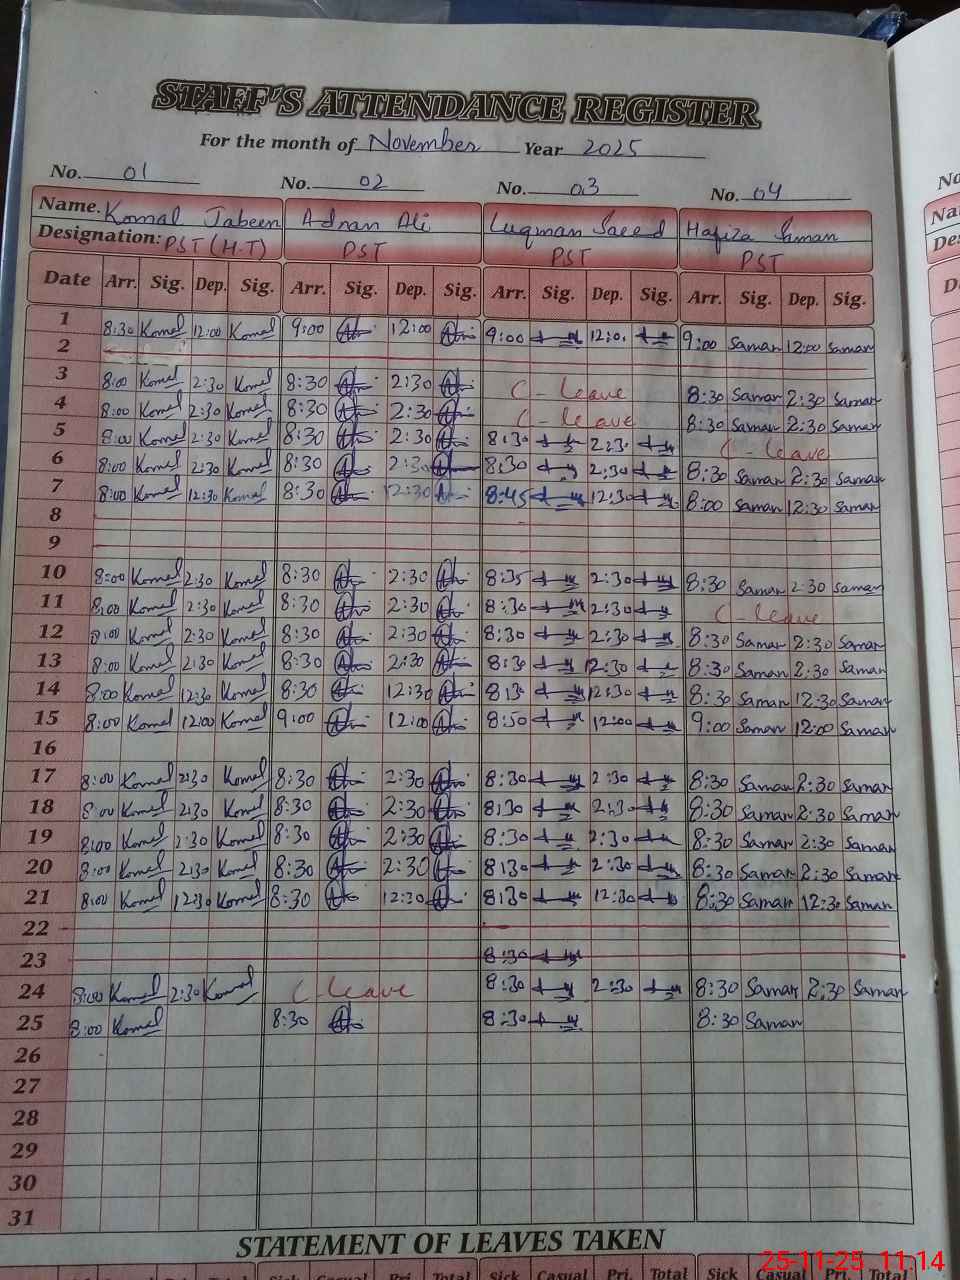 STAFF'S ATTENDANCE REGISTER
For the month of November Year 2025
No. 01 No. 02 No. 03 No. 04
Name. Komal Jabeen Adnan Ali Luqman Saeed Hafiza Saman
Designation: PST (H-T) PST PST PST
Date Arr. Sig. Dep. Sig. Arr. Sig. Dep. Sig. Arr. Sig. Dep. Sig. Arr. Sig. Dep. Sig.
1 8:30 Komal 12:00 Komal 9:00 12:00 9:00 12:0. 9:00 Saman 12:00 Saman
2
3 8:00 Komal 2:30 Komal 8:30 2:30 C - leave 8:30 Saman 2:30 Saman
4 8:00 Komal 2:30 Komal 8:30 2:30 C - leave 8:30 Saman 2:30 Saman
5 8:00 Komal 2:30 Komal 8:30 2:30 8:30 2:30 C - leave
6 8:00 Komal 2:30 Komal 8:30 2:30 8:30 2:30 8:30 Saman 2:30 Saman
7 8:00 Komal 12:30 Komal 8:30 12:30 8:45 12:30 8:00 Saman 12:30 Saman
8
9
10 8:00 Komal 2:30 Komal 8:30 2:30 8:35 2:30 8:30 Saman 2:30 Saman
11 8:00 Komal 2:30 Komal 8:30 2:30 8:30 2:30 C - leave
12 8:00 Komal 2:30 Komal 8:30 2:30 8:30 2:30 8:30 Saman 2:30 Saman
13 8:00 Komal 2:30 Komal 8:30 2:30 8:30 12:30 8:30 Saman 2:30 Saman
14 8:00 Komal 12:30 Komal 8:30 12:30 8:30 12:30 8:30 Saman 12:30 Saman
15 8:00 Komal 12:00 Komal 9:00 12:00 8:50 12:00 9:00 Saman 12:00 Saman
16
17 8:00 Komal 2:30 Komal 8:30 2:30 8:30 2:30 8:30 Saman 2:30 Saman
18 8:00 Komal 2:30 Komal 8:30 2:30 8:30 2:30 8:30 Saman 2:30 Saman
19 8:00 Komal 2:30 Komal 8:30 2:30 8:30 2:30 8:30 Saman 2:30 Saman
20 8:00 Komal 2:30 Komal 8:30 2:30 8:30 2:30 8:30 Saman 2:30 Saman
21 8:00 Komal 12:30 Komal 8:30 12:30 8:30 12:30 8:30 Saman 12:30 Saman
22
23 8:30
24 8:00 Komal 2:30 Komal C - leave 8:30 2:30 8:30 Saman 2:30 Saman
25 8:00 Komal 8:30 8:30 8:30 Saman
26
27
28
29
30
31
STATEMENT OF LEAVES TAKEN
Sick Casual Pri. Total Sick Casual Pri. Total Sick Casual Pri. Total
25-11-25 11:14